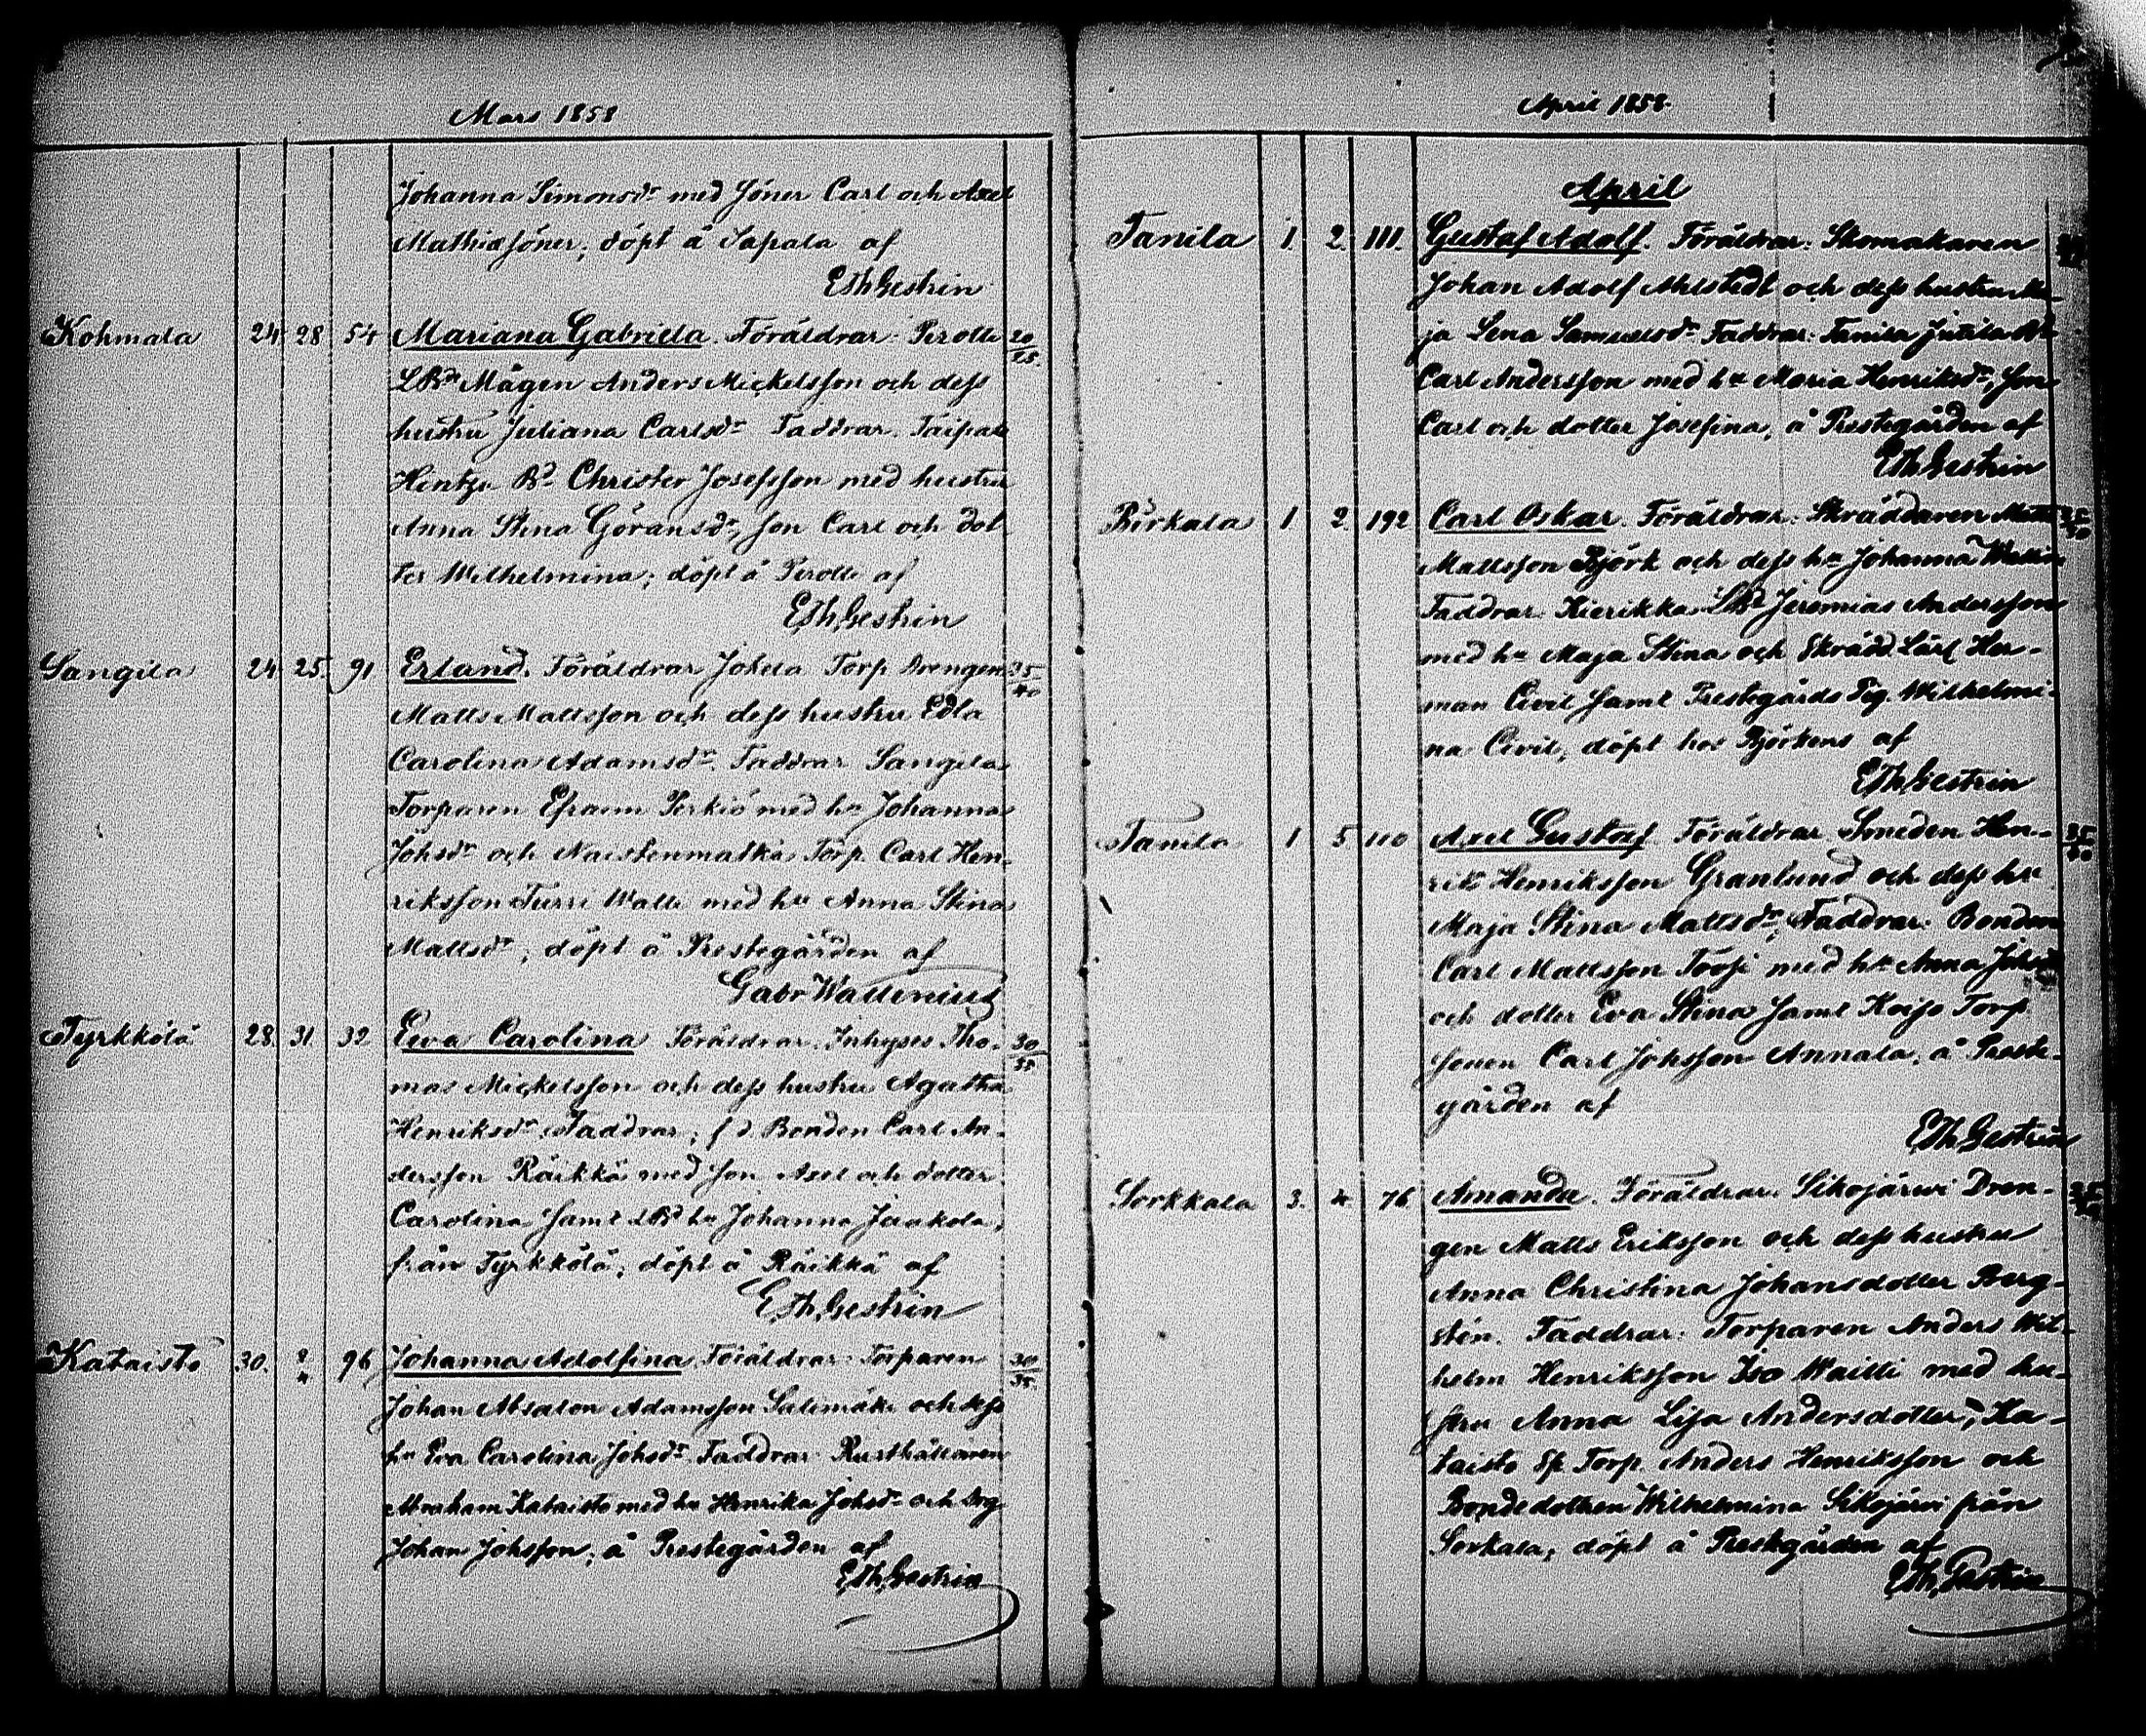 Mars 1858
Johanna Simonsdr med Söner Carl och Axel
Mathiæsöner; döpt å Sapala af
E.Th.Gestrin
Kohmala 24 28 54 Mariana Gabriela. Föräldrar: Perolle 20/25.
LBds Mågen Anders Mickelsson och dess
hustru Juliana Carlsdr Faddrar. Taipale
Hentzu Bd Christer Josefsson med hustru
Anna Stina Göransdr, son Carl och dot
ter Wilhelmina; döpt å Perolle af
E.Th.Gestrin
Sangila 24 25. 91 Erland. Föräldrar Jokela Torp Drengen 35/40
Matts Mattsson och dess hustru Edla
Carolina Adamsdr. Faddrar Sangila
Torparen Efraim Perkiö med hu Johanna
Johsdr och Naistenmatka Torp. Carl Hen-
riksson Turri Walli med hu Anna Stina
Mattsdr; döpt å Prestegården af
Gabr Wallenius
Tyrkkölä 28 31. 32 Ewa Carolina Föräldrar. Inhyses Tho- 30/35
mas Mickelsson och dess hustru Agatha
Henriksdr; Faddrar; f d. Bonden Carl An-
dersson Räikkä med son Axel och dotter
Carolina samt LBd hu Johanna Jaakola,
från Tyrkkölä; döpt å Räikkä af
E.Th.Gestrin
Kataisto 30. 2/4 96 Johanna Adolfina Föräldrar: Torparen 30/35.
Johan Absalon Adamsson Salimäki och dess
hu Eva Carolina Johsdr Faddrar Rusthållaren
Abraham Kataisto med hu Henrika Johsdr och Drg.
Johan Johsson; å Prestegården af
E.Th.Gestrin
April 1858
April
Tanila 1. 2. 111. Gustaf Adolf. Föräldrar: Skomakaren
Johan Adolf Ahlstedt och dess hustru Ma-
ja Lena Samuelsdr Faddrar: Tanila Jutila Bd
Carl Andersson med hu Maria Henriksdr, son
Carl och dotter Josefina, å Prestegården af
E.Th.Gestrin
Pirkala 1 2. 192 Carl Oskar. Föräldrar: Skräddaren Matts
Mattsson Björk och dess hu Johanna Wallin
Faddrar. Kierikka LBd Jeremias Andersson
med hu Maja Stina och Skrädd. Lärl Her-
man Civil samt Prestegårds Pig. Wilhelmi-
na Civil, döpt hos Björkens af
E.Th.Gestrin
Tanila 1 5 110 Axel Gustaf Föräldrar Smeden Hen- 35/40
rik Henriksson Granlund och dess hu
Maja Stina Mattsdr, Faddrar: Bonden
Carl Mattsson Tossi med hu Anna
och dotter Eva Stina samt Kojo Torp.
sonen Carl Johsson Annala, å Preste-
gården af
E.Th.Gestrin
Sorkkala 3. 4. 76 Amanda. Föräldrar. Sikojärwi Dren-
gen Matts Eriksson och dess hustru
Anna Christina Johansdotter Berg-
stén. Faddrar: Torparen Anders Wil-
helm Henriksson Iso Waitti med hu-
stru Anna Lisa Andersdotter, Ka-
taisto Sp. Torp. Anders Henriksson och
Bondedottren Wilhelmina Sikojärvi från
Sorkala, döpt å Prestegården af
E.Th.Gestrin